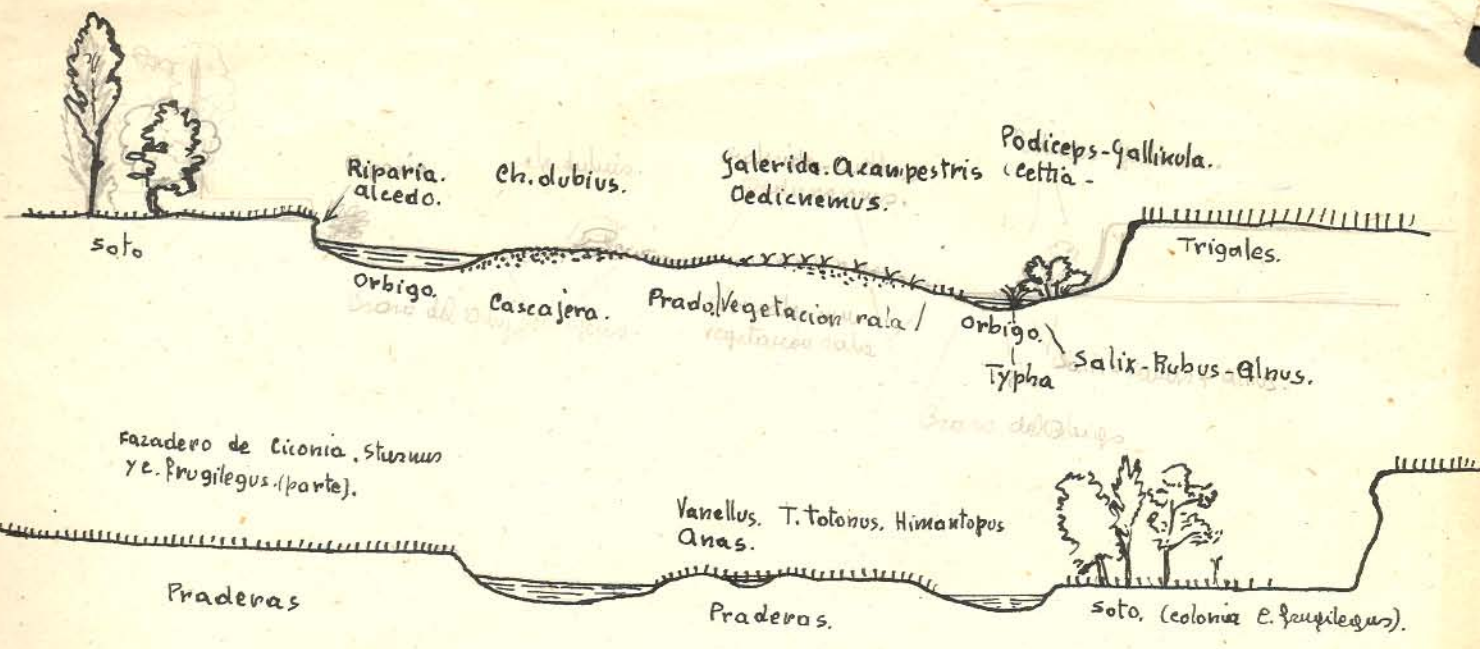 Riparia.
alcedo.
Ch. dubius.
Galerida. A campestris
Oedicnemus.
Podiceps-Gallinula.
Cettia -
Soto
Orbigo.
Cascajera.
Prado/Vegetacion rala/
Orbigo.
Typha
Salix-Rubus-Alnus.
Trigales.
Fazadero de Ciconia. Sturnus
y c. frugilegus. (parte).
Praderas
Vanellus. T. totonus. Himantopus
Anas.
Praderas.
Soto. (colonia C. frugilegus).